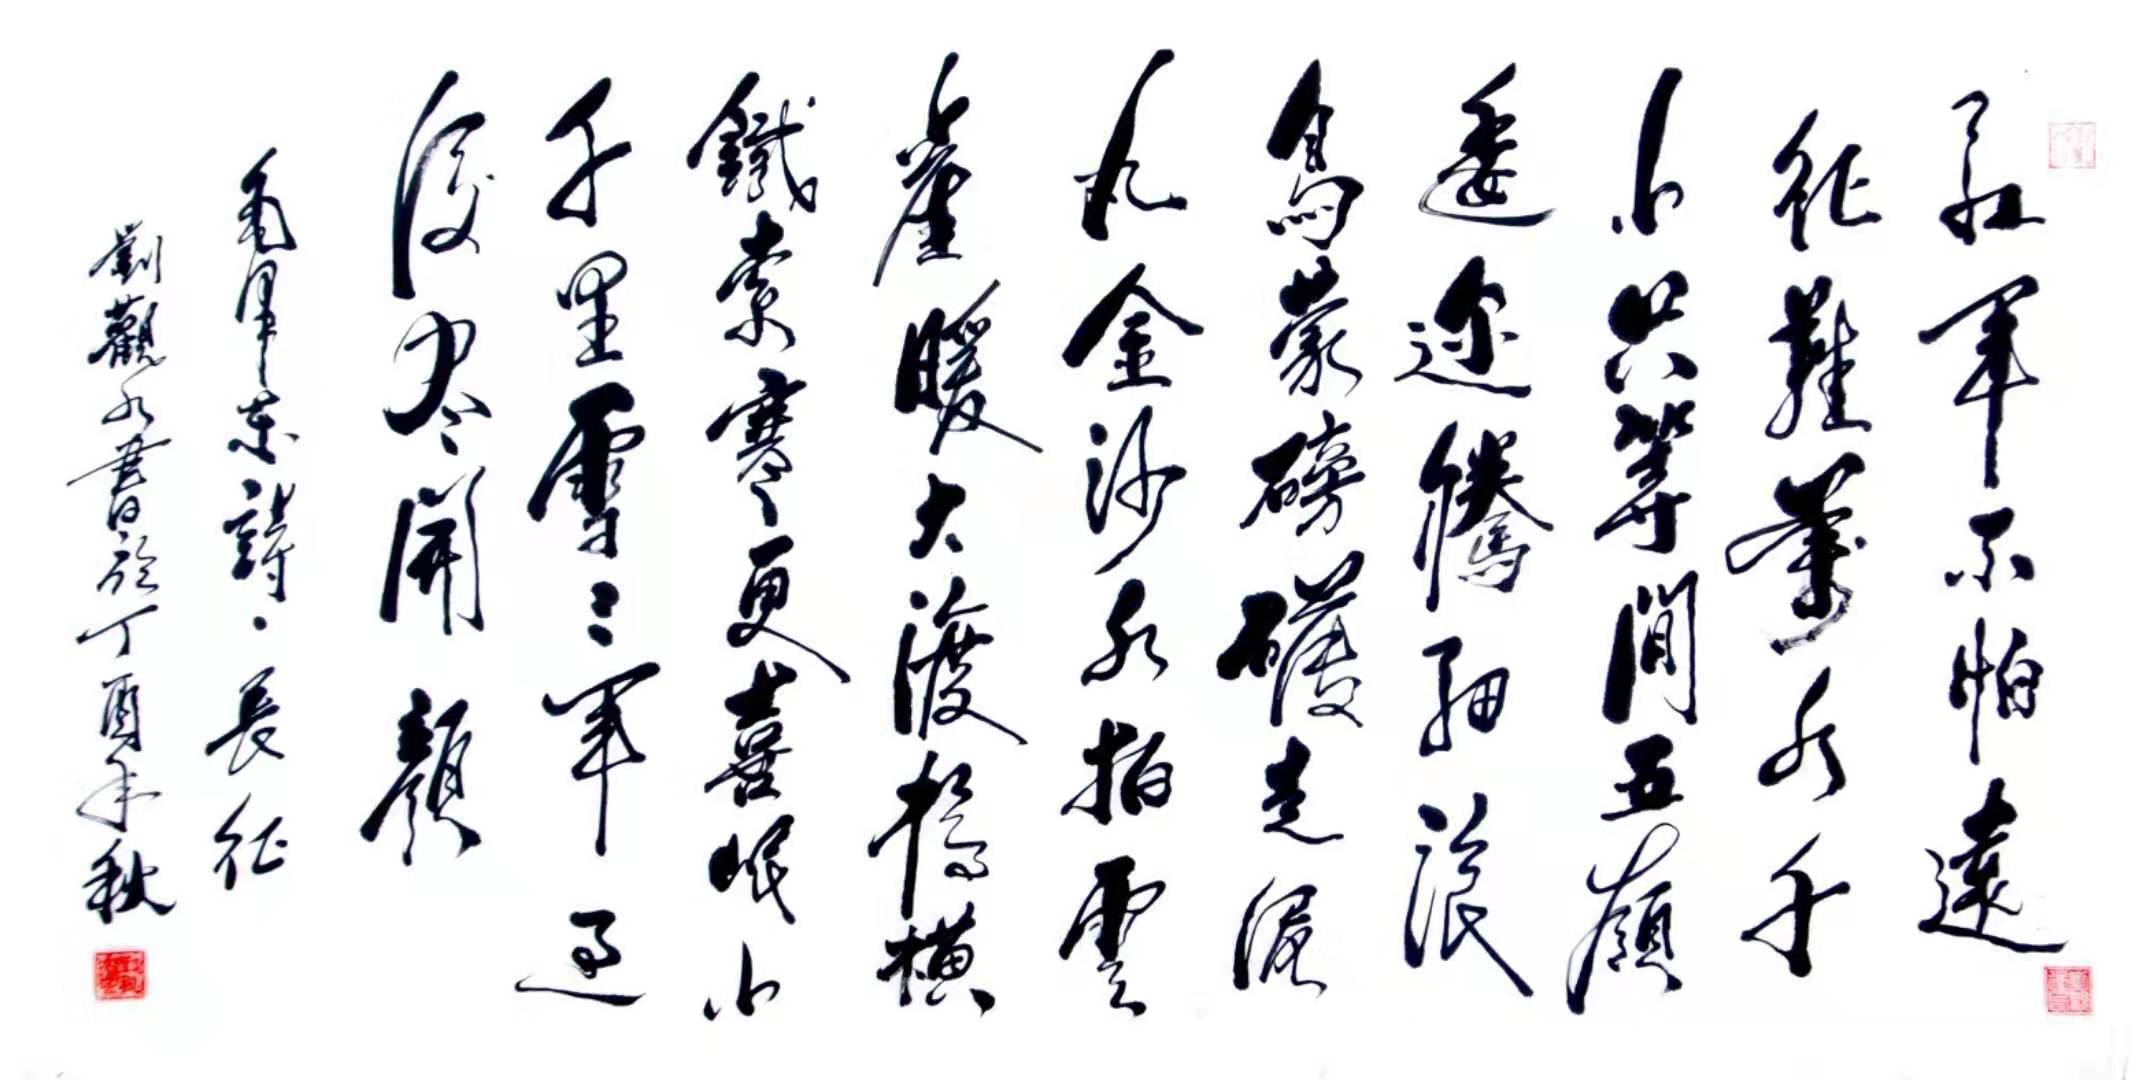 紅軍不怕遠
征難萬水千
山只等間五嶺
逶迤騰細浪
烏蒙磅礴走泥
丸金沙水拍雲
崖暖大渡橋橫
鐵索寒更喜岷山
千里雪三軍過
後盡開顏
毛澤東詩·長征
劉觀水書於丁酉年秋